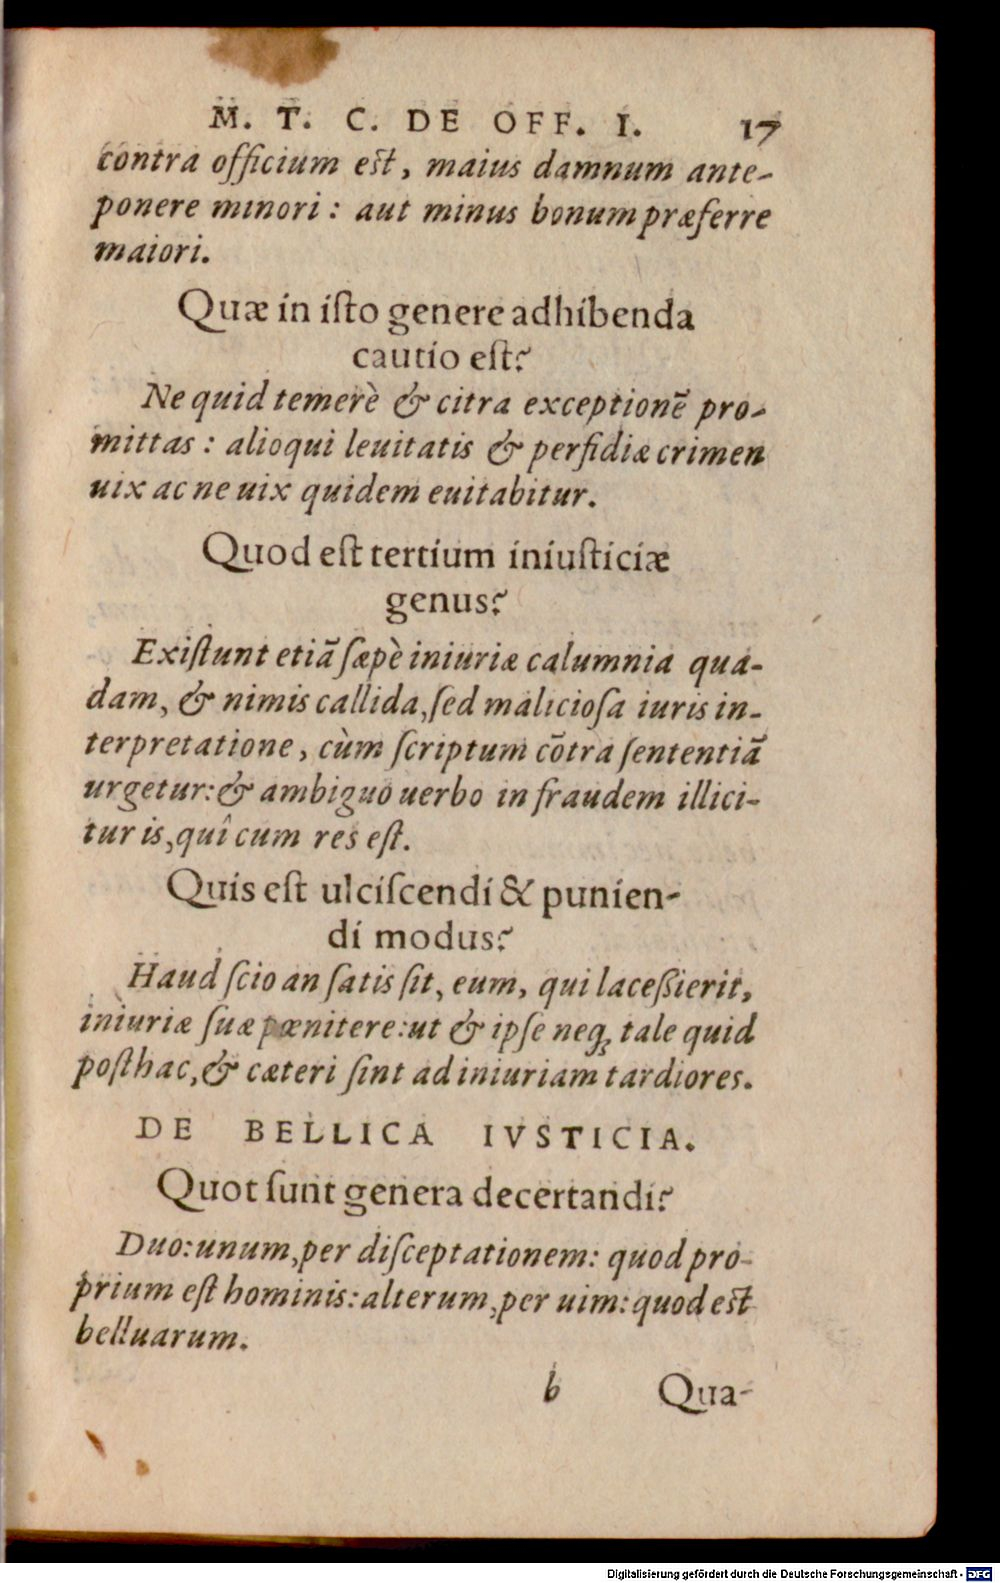 M. T. C. DE OFF. I. 17
contra officium est, maius damnum ante-
ponere minori: aut minus bonum præferre
maiori.
Quæ in isto genere adhibenda
cautio est?
Ne quid temerè & citra exceptionē pro-
mittas: alioqui leuitatis & perfidiæ crimen
uix ac ne uix quidem euitabitur.
Quod est tertium iniusticiæ
genus?
Exiſtunt etiā ſæpè iniuriæ calumnia qua-
dam, & nimis callida, ſed malicioſa iuris in-
terpretatione, cùm ſcriptum cōtra ſententiā
urgetur: & ambiguo uerbo in fraudem illici-
tur is, quî cum res eſt.
Quis est ulciſcendi & punien-
di modus?
Haud ſcio an ſatis ſit, eum, qui laceßierit,
iniuriæ ſuæ pœnitere: ut & ipſe neqꝫ tale quid
poſthac, & cæteri ſint ad iniuriam tardiores.
DE BELLICA IVSTICIA.
Quot ſunt genera decertandi?
Duo: unum, per diſceptationem: quod pro-
prium eſt hominis: alterum, per uim: quod est
belluarum.
b Qua-
Digitalisierung gefördert durch die Deutsche Forschungsgemeinschaft - DFG